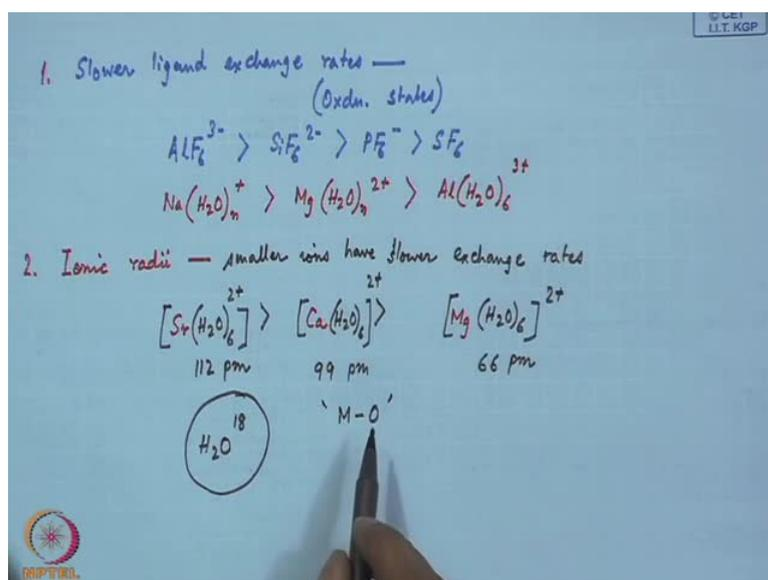 © CET
I.I.T. KGP
1. Slower ligand exchange rates —
(Oxdn. states)
AlF₆³⁻ > SiF₆²⁻ > PF₆⁻ > SF₆
Na(H₂O)ₙ⁺ > Mg(H₂O)ₙ²⁺ > Al(H₂O)₆³⁺
2. Ionic radii — smaller ions have slower exchange rates
[Sr(H₂O)₆²⁺] > [Ca(H₂O)₆²⁺] > [Mg(H₂O)₆]²⁺
112 pm 99 pm 66 pm
H₂O¹⁸ 'M-O'
NPTEL